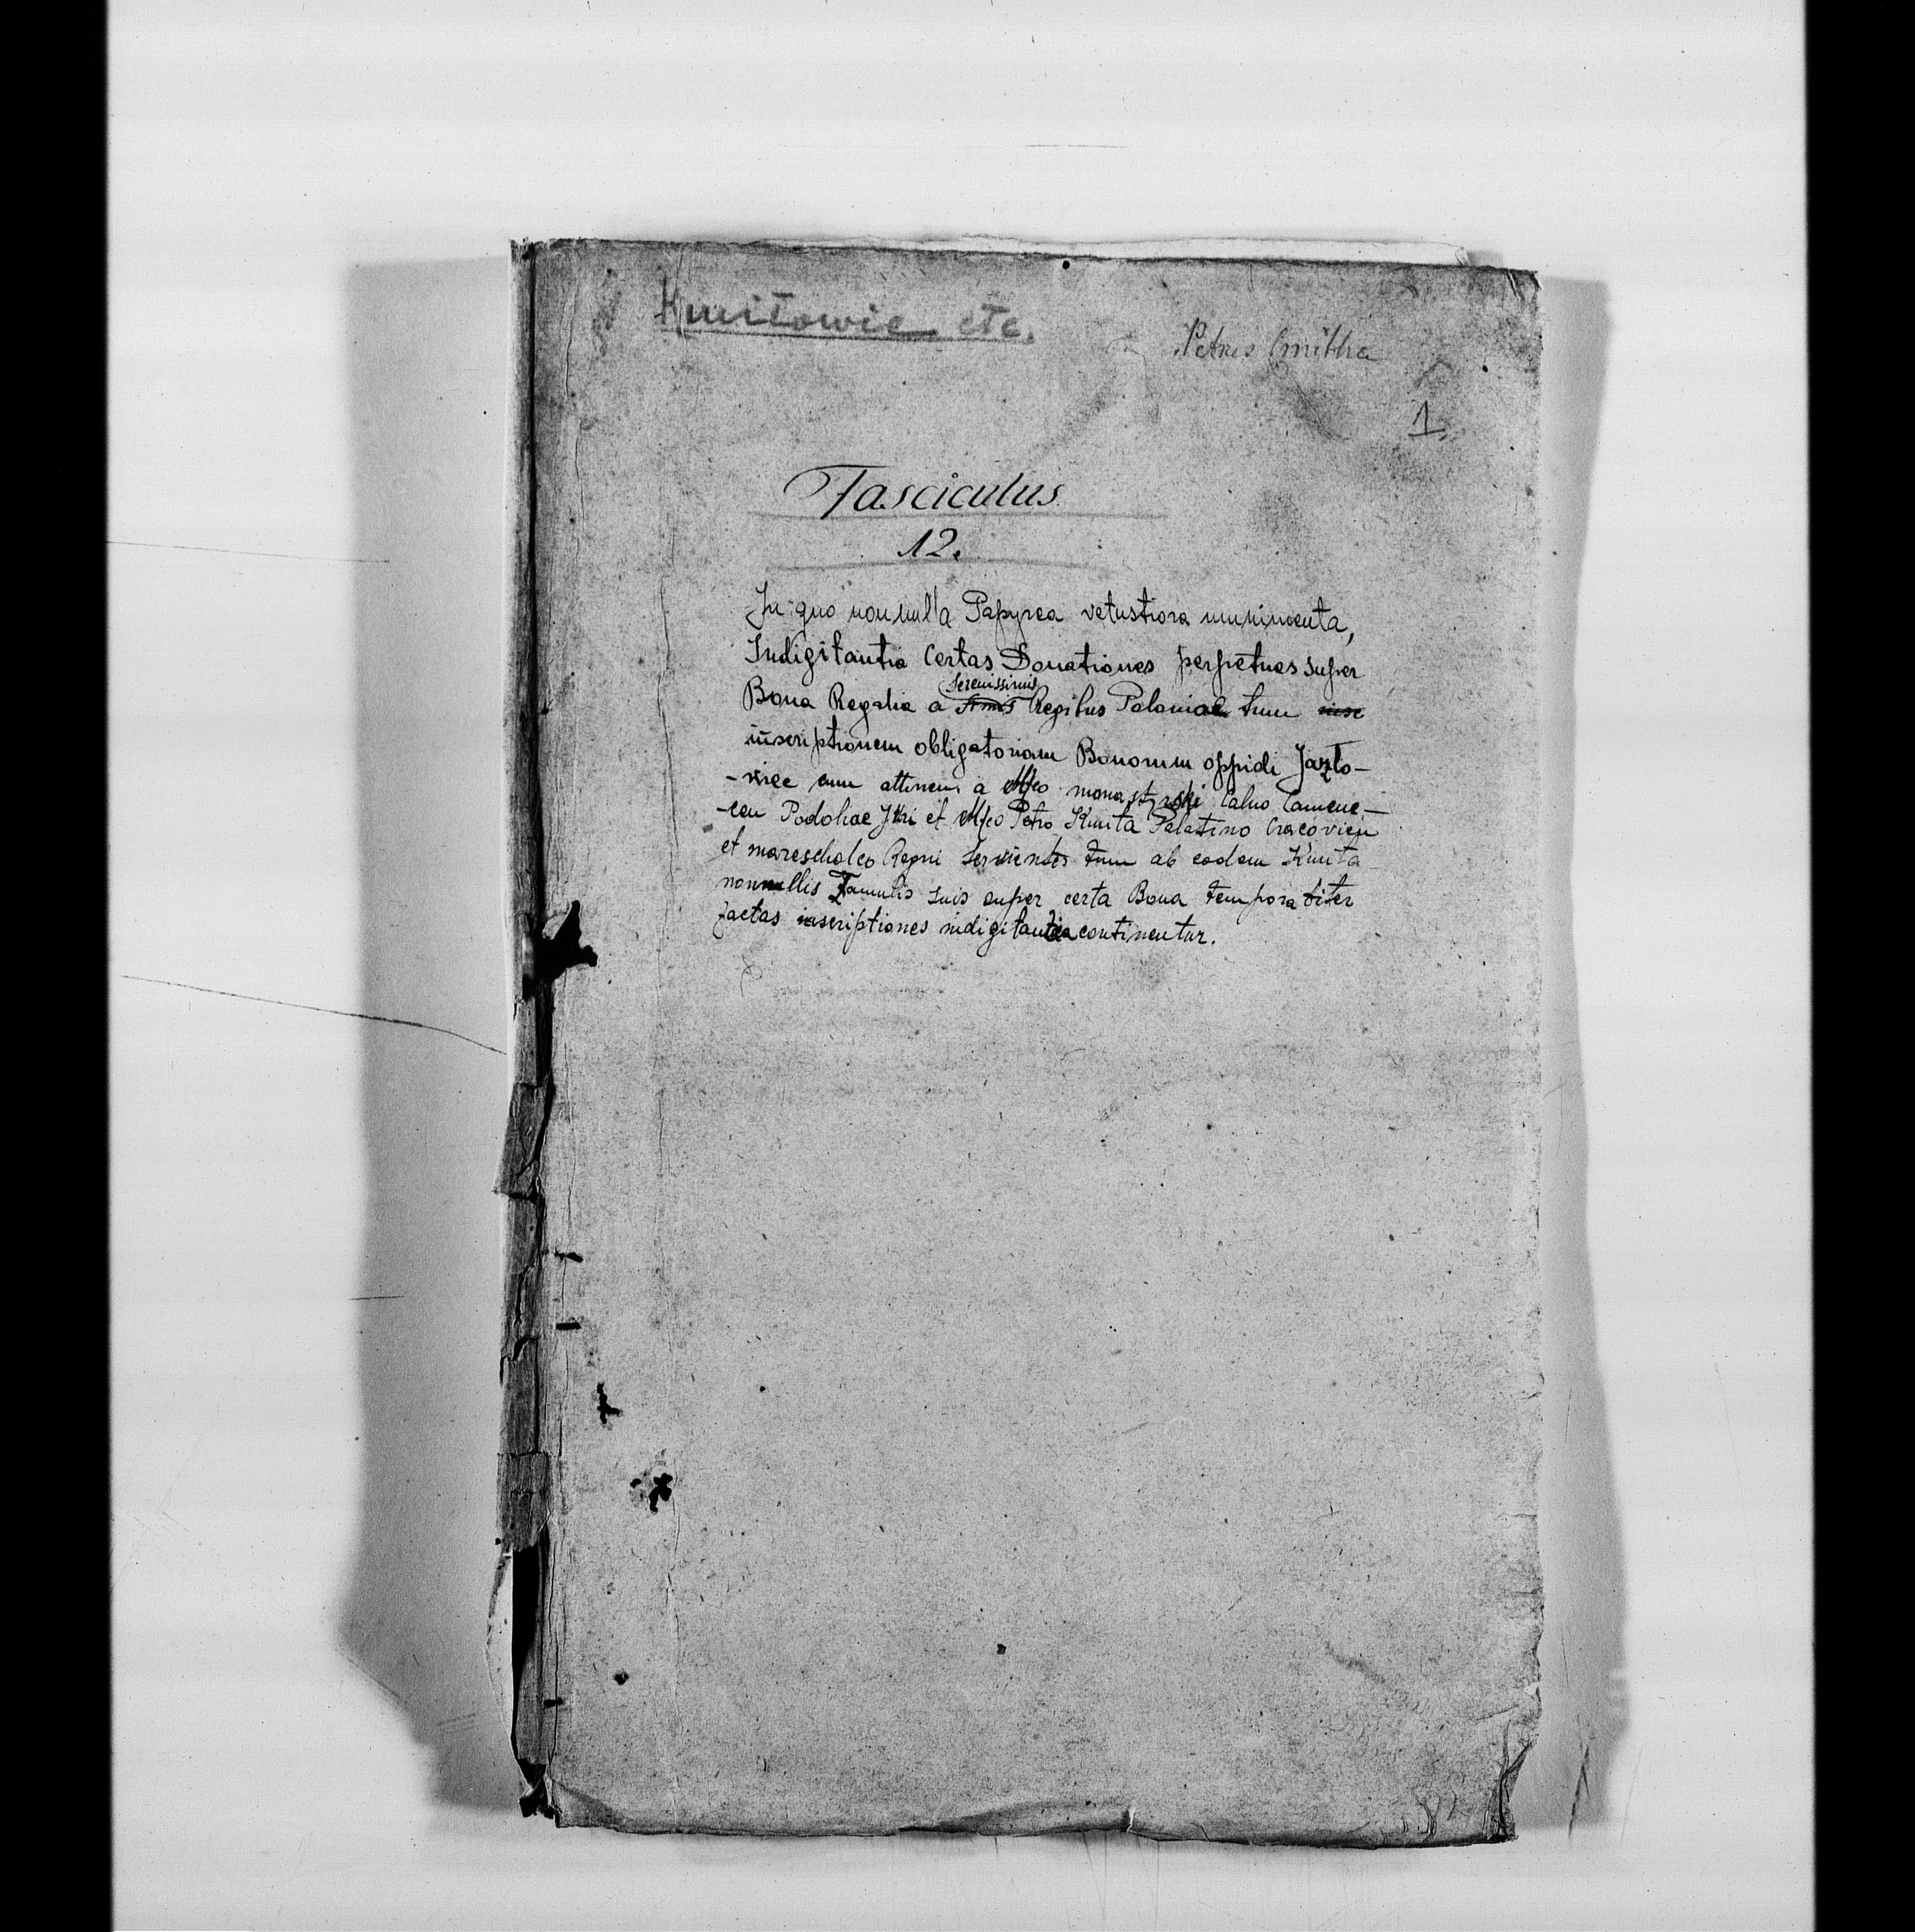 Kmitowie etc.
Petrus Cmitha
1.
Fasciculus
12.
In quo nonnulla Papyrea vetustiora munimenta,
Indigitantia Certas Donationes perpetuas super
Serenissimis
Bona Regalia a Regibus Poloniae tum insc
inscriptionem obligatoriam Bonorum oppidi Jazło-
-wiec cum attinen: a Mfco monastyrski Calno Camene-
-cen Podoliae Jllri et Mfco Petro Kmita Palatino Cracovien
et mareschalco Regni servientes tum ab eodem Kmita
nonnullis Famulis suis super certa Bona temporaliter
factas inscriptiones indigitantia continentur.